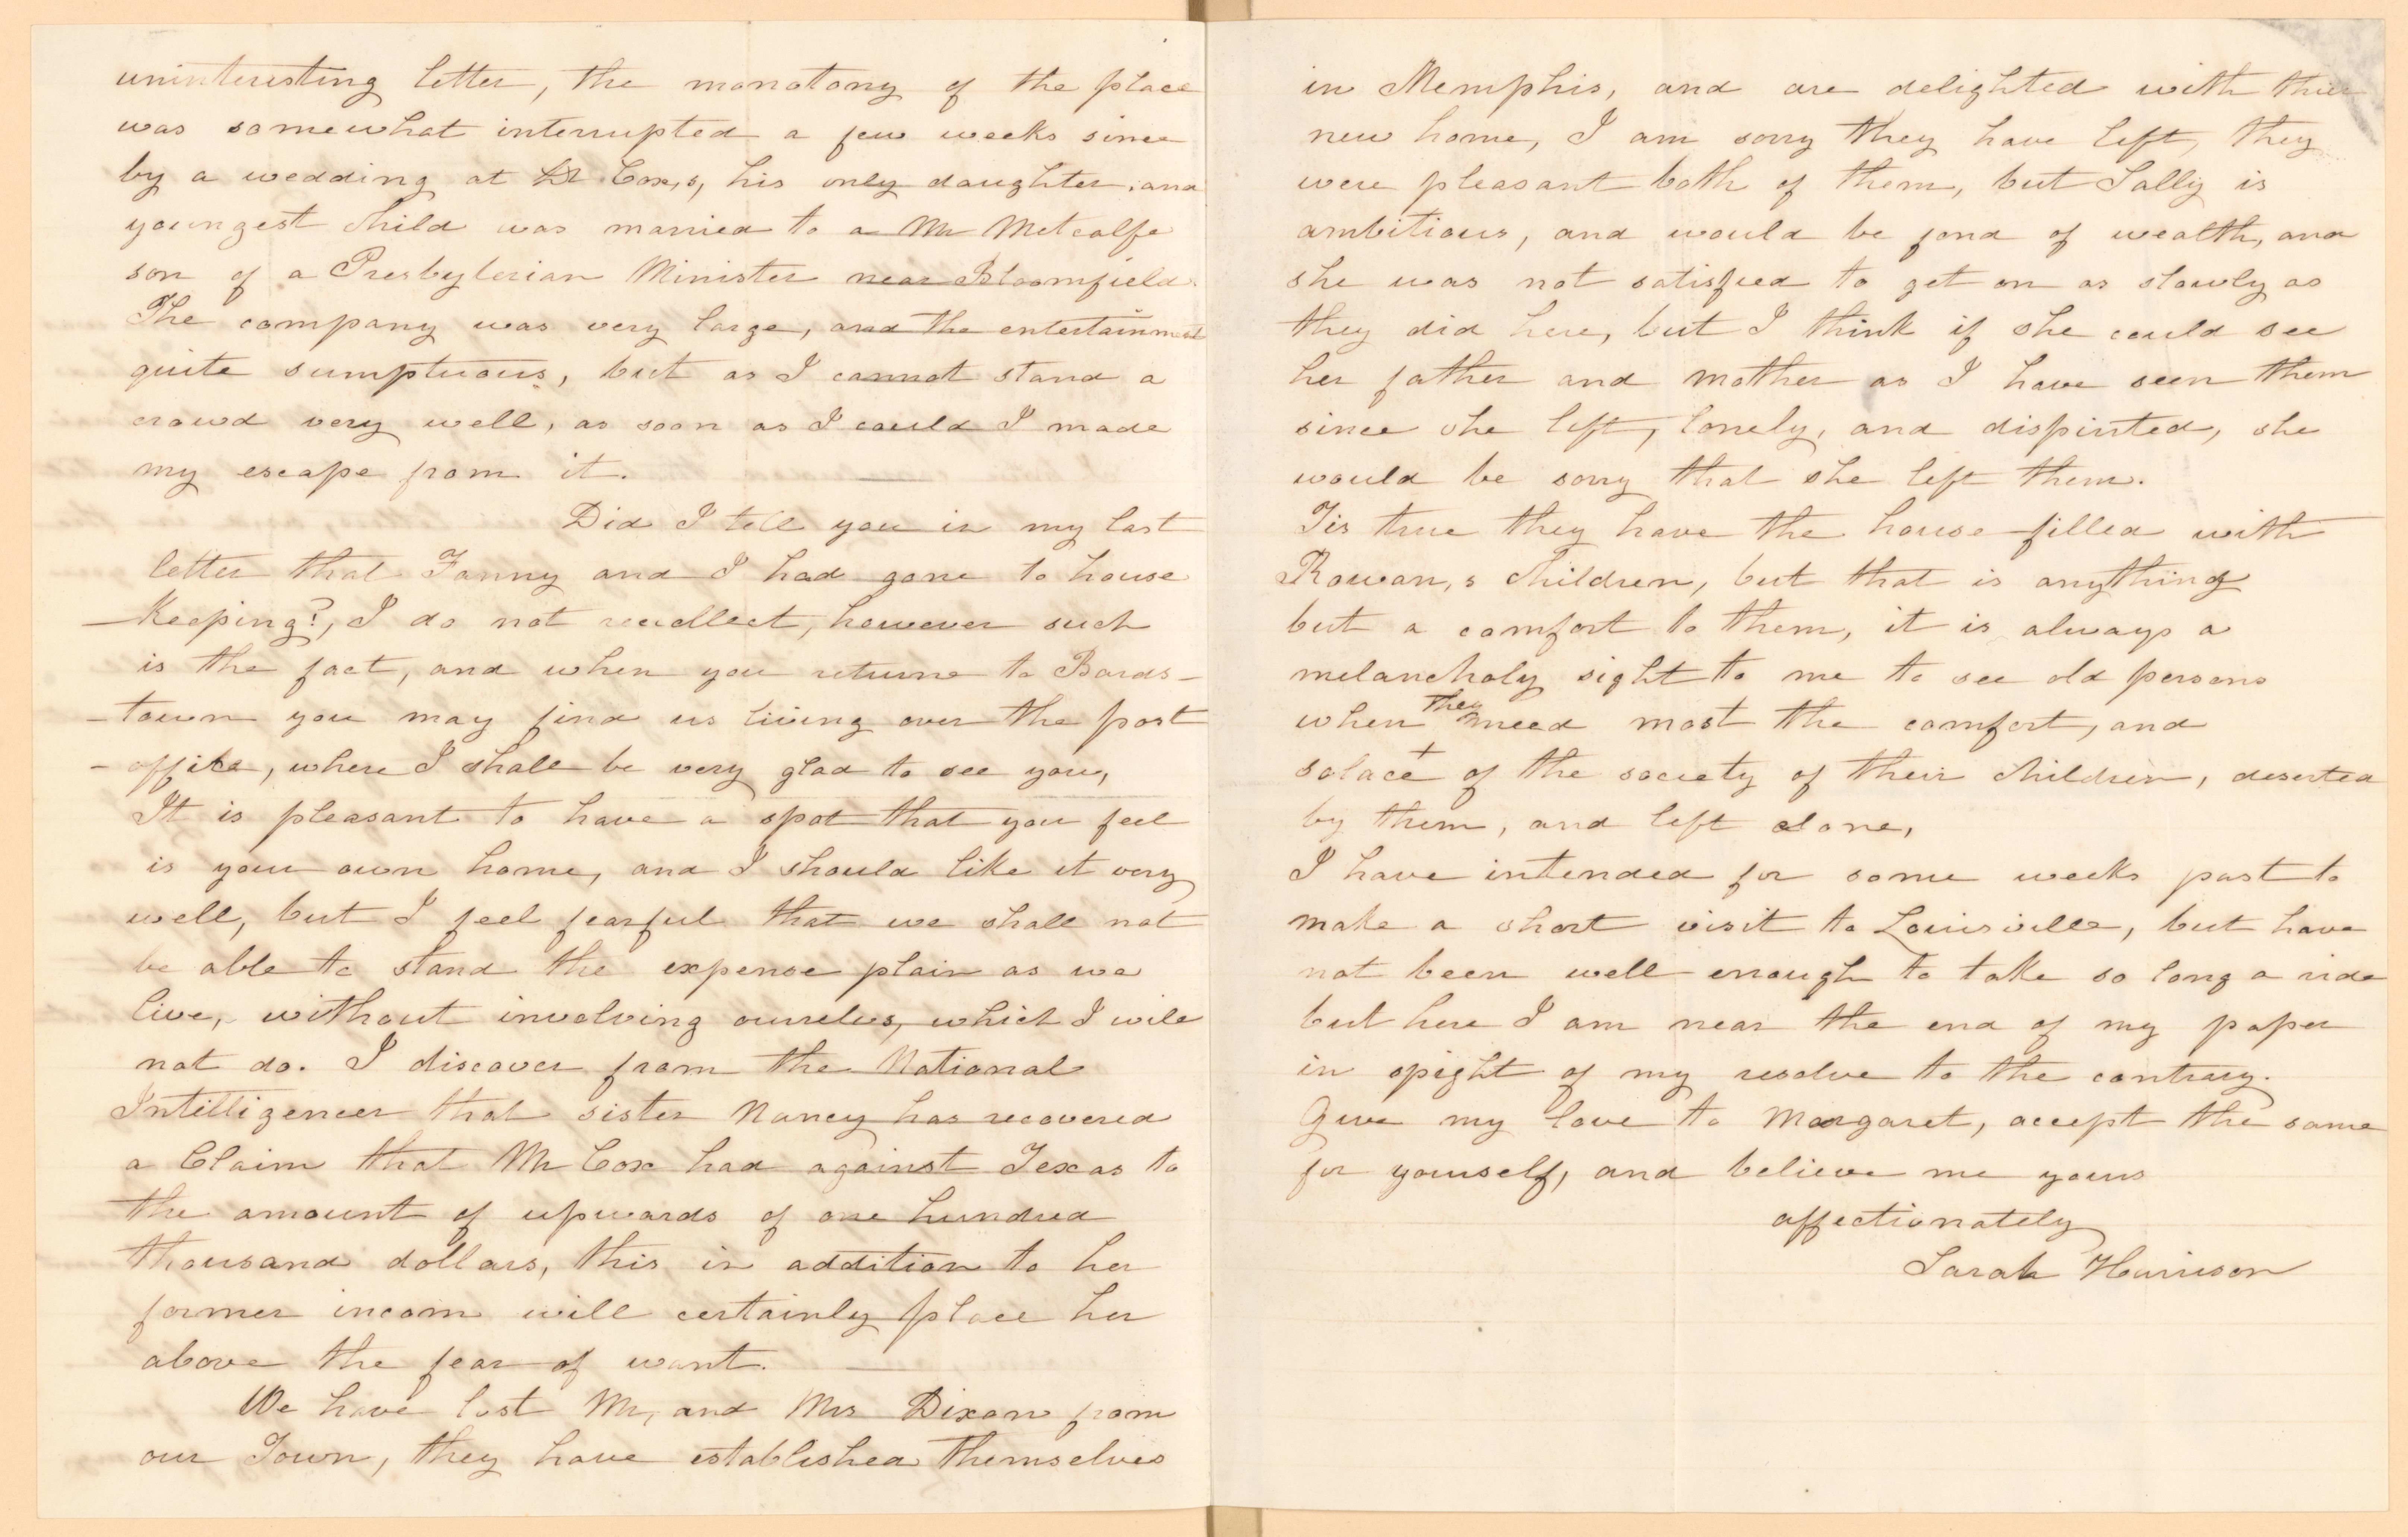 uninteresting letter, the monotony of the place
was somewhat interrupted a few weeks since
by a wedding at Dr Cox,s, his only daughter, and
youngest child was married to a Mr Metcalfe
son of a Presbyterian Minister near Bloomfield.
The company was very large, and the entertainment
quite sumptuous, but as I cannot stand a
crowd very well, as soon as I could I made
my escape from it. —
Did I tell you in my last
letter that Fanny and I had gone to house
-Keeping?, I do not recollect, however such
is the fact, and when you return to Bards-
-town you may find us living over the post
-office, where I shall be very glad to see you,
It is pleasant to have a spot that you feel
is your own home, and I should like it very
well, but I feel fearful that we shall not
be able to stand the expense plain as we
live, without involving ourselves, which I will
not do. I discover from the National
Intilligencer that sister Nancy has recovered
a Claim that Mr Cox had against Texas to
the amount of upwards of one hundred
thousand dollars, this in addition to her
former incom will certainly place her
above the fear of want. —
We have lost Mr, and Mrs Dixon from
our Town, they have established themselves
in Memphis, and are delighted with thier
new home, I am sorry they have left, they
were pleasant both of them, but Sally is
ambitious, and would be fond of wealth, and
she was not satisfied to get on as slowly as
they did here, but I think if she could see
her father and mother as I have seen them
since she left, lonely, and dispirited, she
would be sorry that she left them.
Tis true they have the house filled with
Rowan,s children, but that is anything
but a comfort to them, it is always a
melancholy sight to me to see old persons
when they need most the comfort, and
solace + of the society of their children, deserted
by them, and left alone,
I have intended for some weeks past to
make a short visit to Louisville, but have
not been well enough to take so long a ride
but here I am near the end of my paper
in spight of my resolve to the contrary.
Give my love to Margaret, accept the same
for yourself, and believe me yours
affectionately
Sarah Harrison